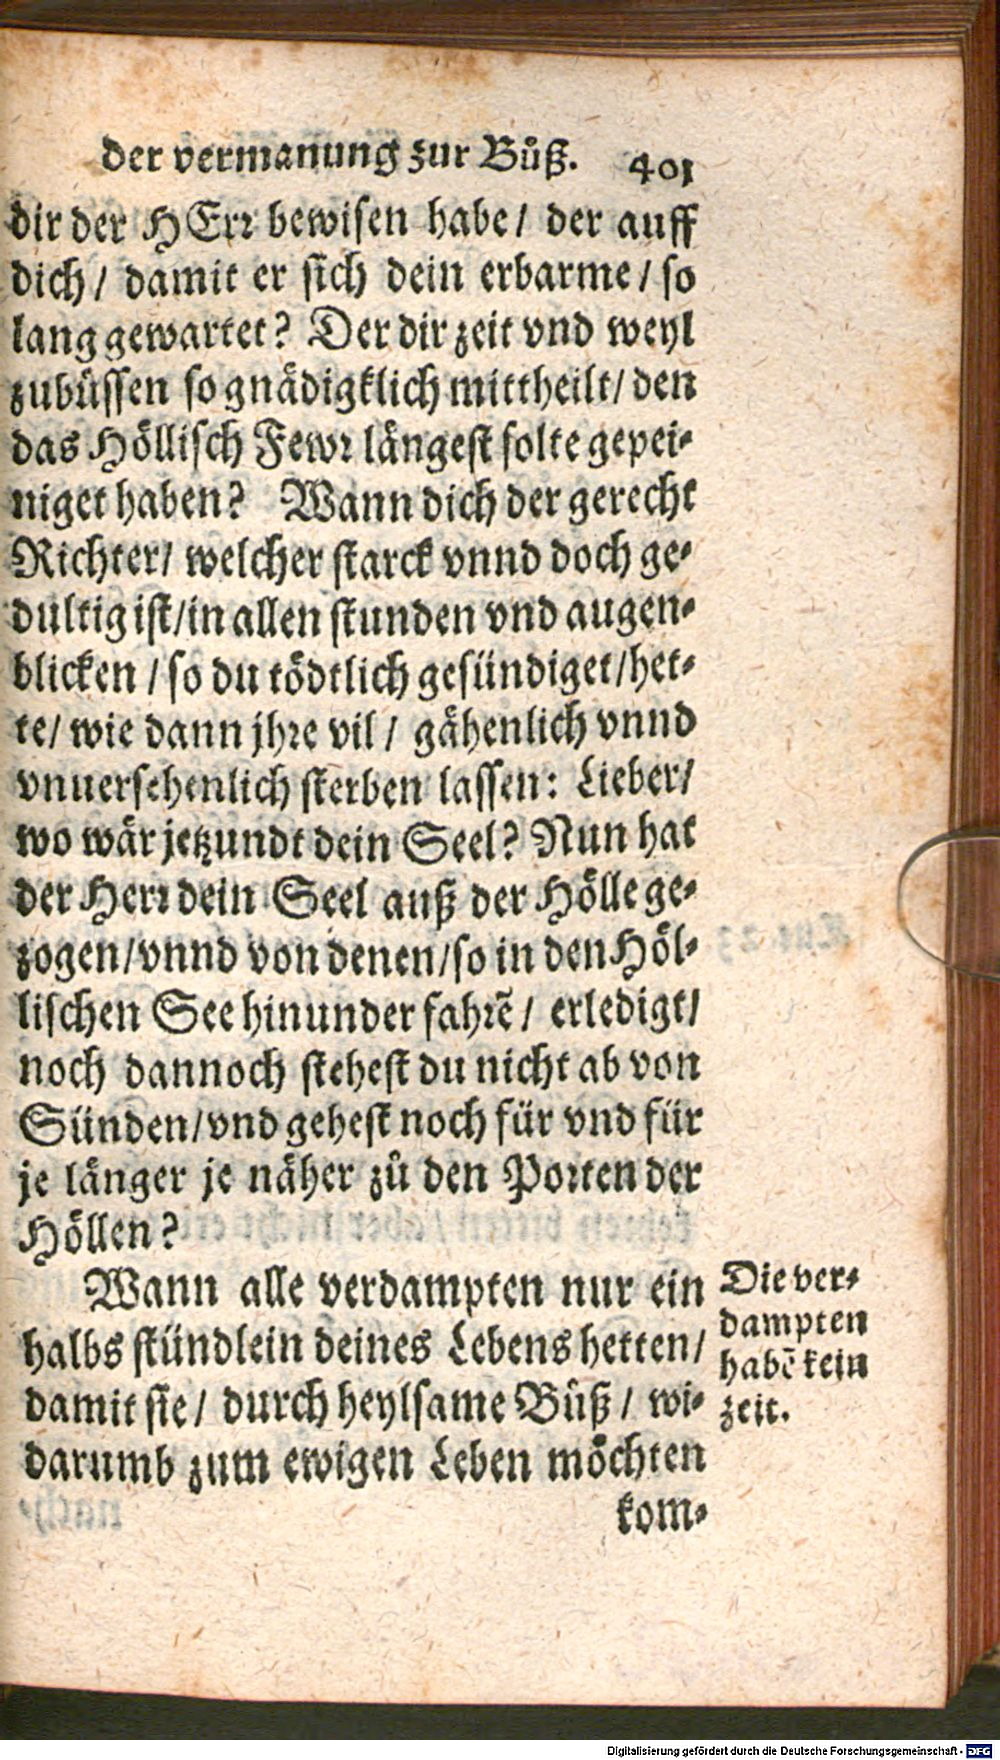 der vermanung zur Bůß. 401
dir der HErr bewisen habe/ der auff
dich/ damit er sich dein erbarme/ so
lang gewartet? Der dir zeit vnd weyl
zubüssen so gnädigklich mittheilt/ den
das Höllisch Fewr längest solte gepei-
niget haben? Wann dich der gerecht
Richter/ welcher starck vnnd doch ge-
dultig ist/ in allen stunden vnd augen-
blicken/ so du tödtlich gesündiget/ het-
te/ wie dann jhre vil/ gähenlich vnnd
vnuersehenlich sterben lassen: Lieber/
wo wär jetzundt dein Seel? Nun hat
der Herr dein Seel auß der Hölle ge-
zogen/ vnnd von denen/ so in den Höl-
lischen See hinunder fahrẽ/ erledigt/
noch dannoch stehest du nicht ab von
Sünden/ vnd gehest noch für vnd für
je länger je näher zů den Porten der
Höllen?
Wann alle verdampten nur ein
halbs stündlein deines Lebens hetten/
damit sie/ durch heylsame Bůß/ wi-
darumb zum ewigen Leben möchten
kom-
Die ver-
dampten
habẽ kein
zeit.
Digitalisierung gefördert durch die Deutsche Forschungsgemeinschaft - DFG